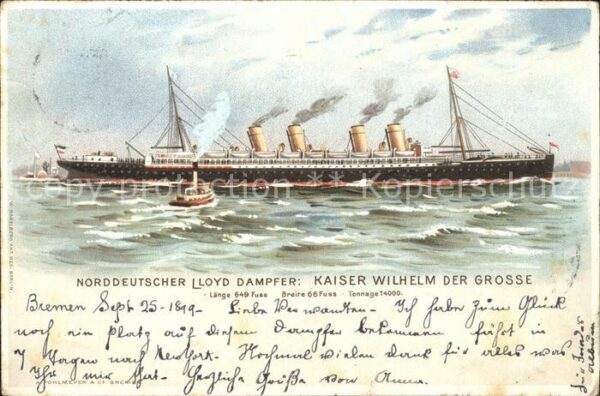 copy-protection ** Kopierschutz
NORDDEUTSCHER LLOYD DAMPFER: KAISER WILHELM DER GROSSE
- Länge 649 Fuss Breite 66 Fuss - Tonnage 14000.
Bremen Sept 25-1899- Liebe Verwandten- Ich habe zum Glück
noch ein Platz auf diesem Dampfer bekommen fährt in
7 Tagen nach New York. Hochmal vielen dank für alles was
Ihr mir that. Herzliche Grüße von Anna.
für
Album